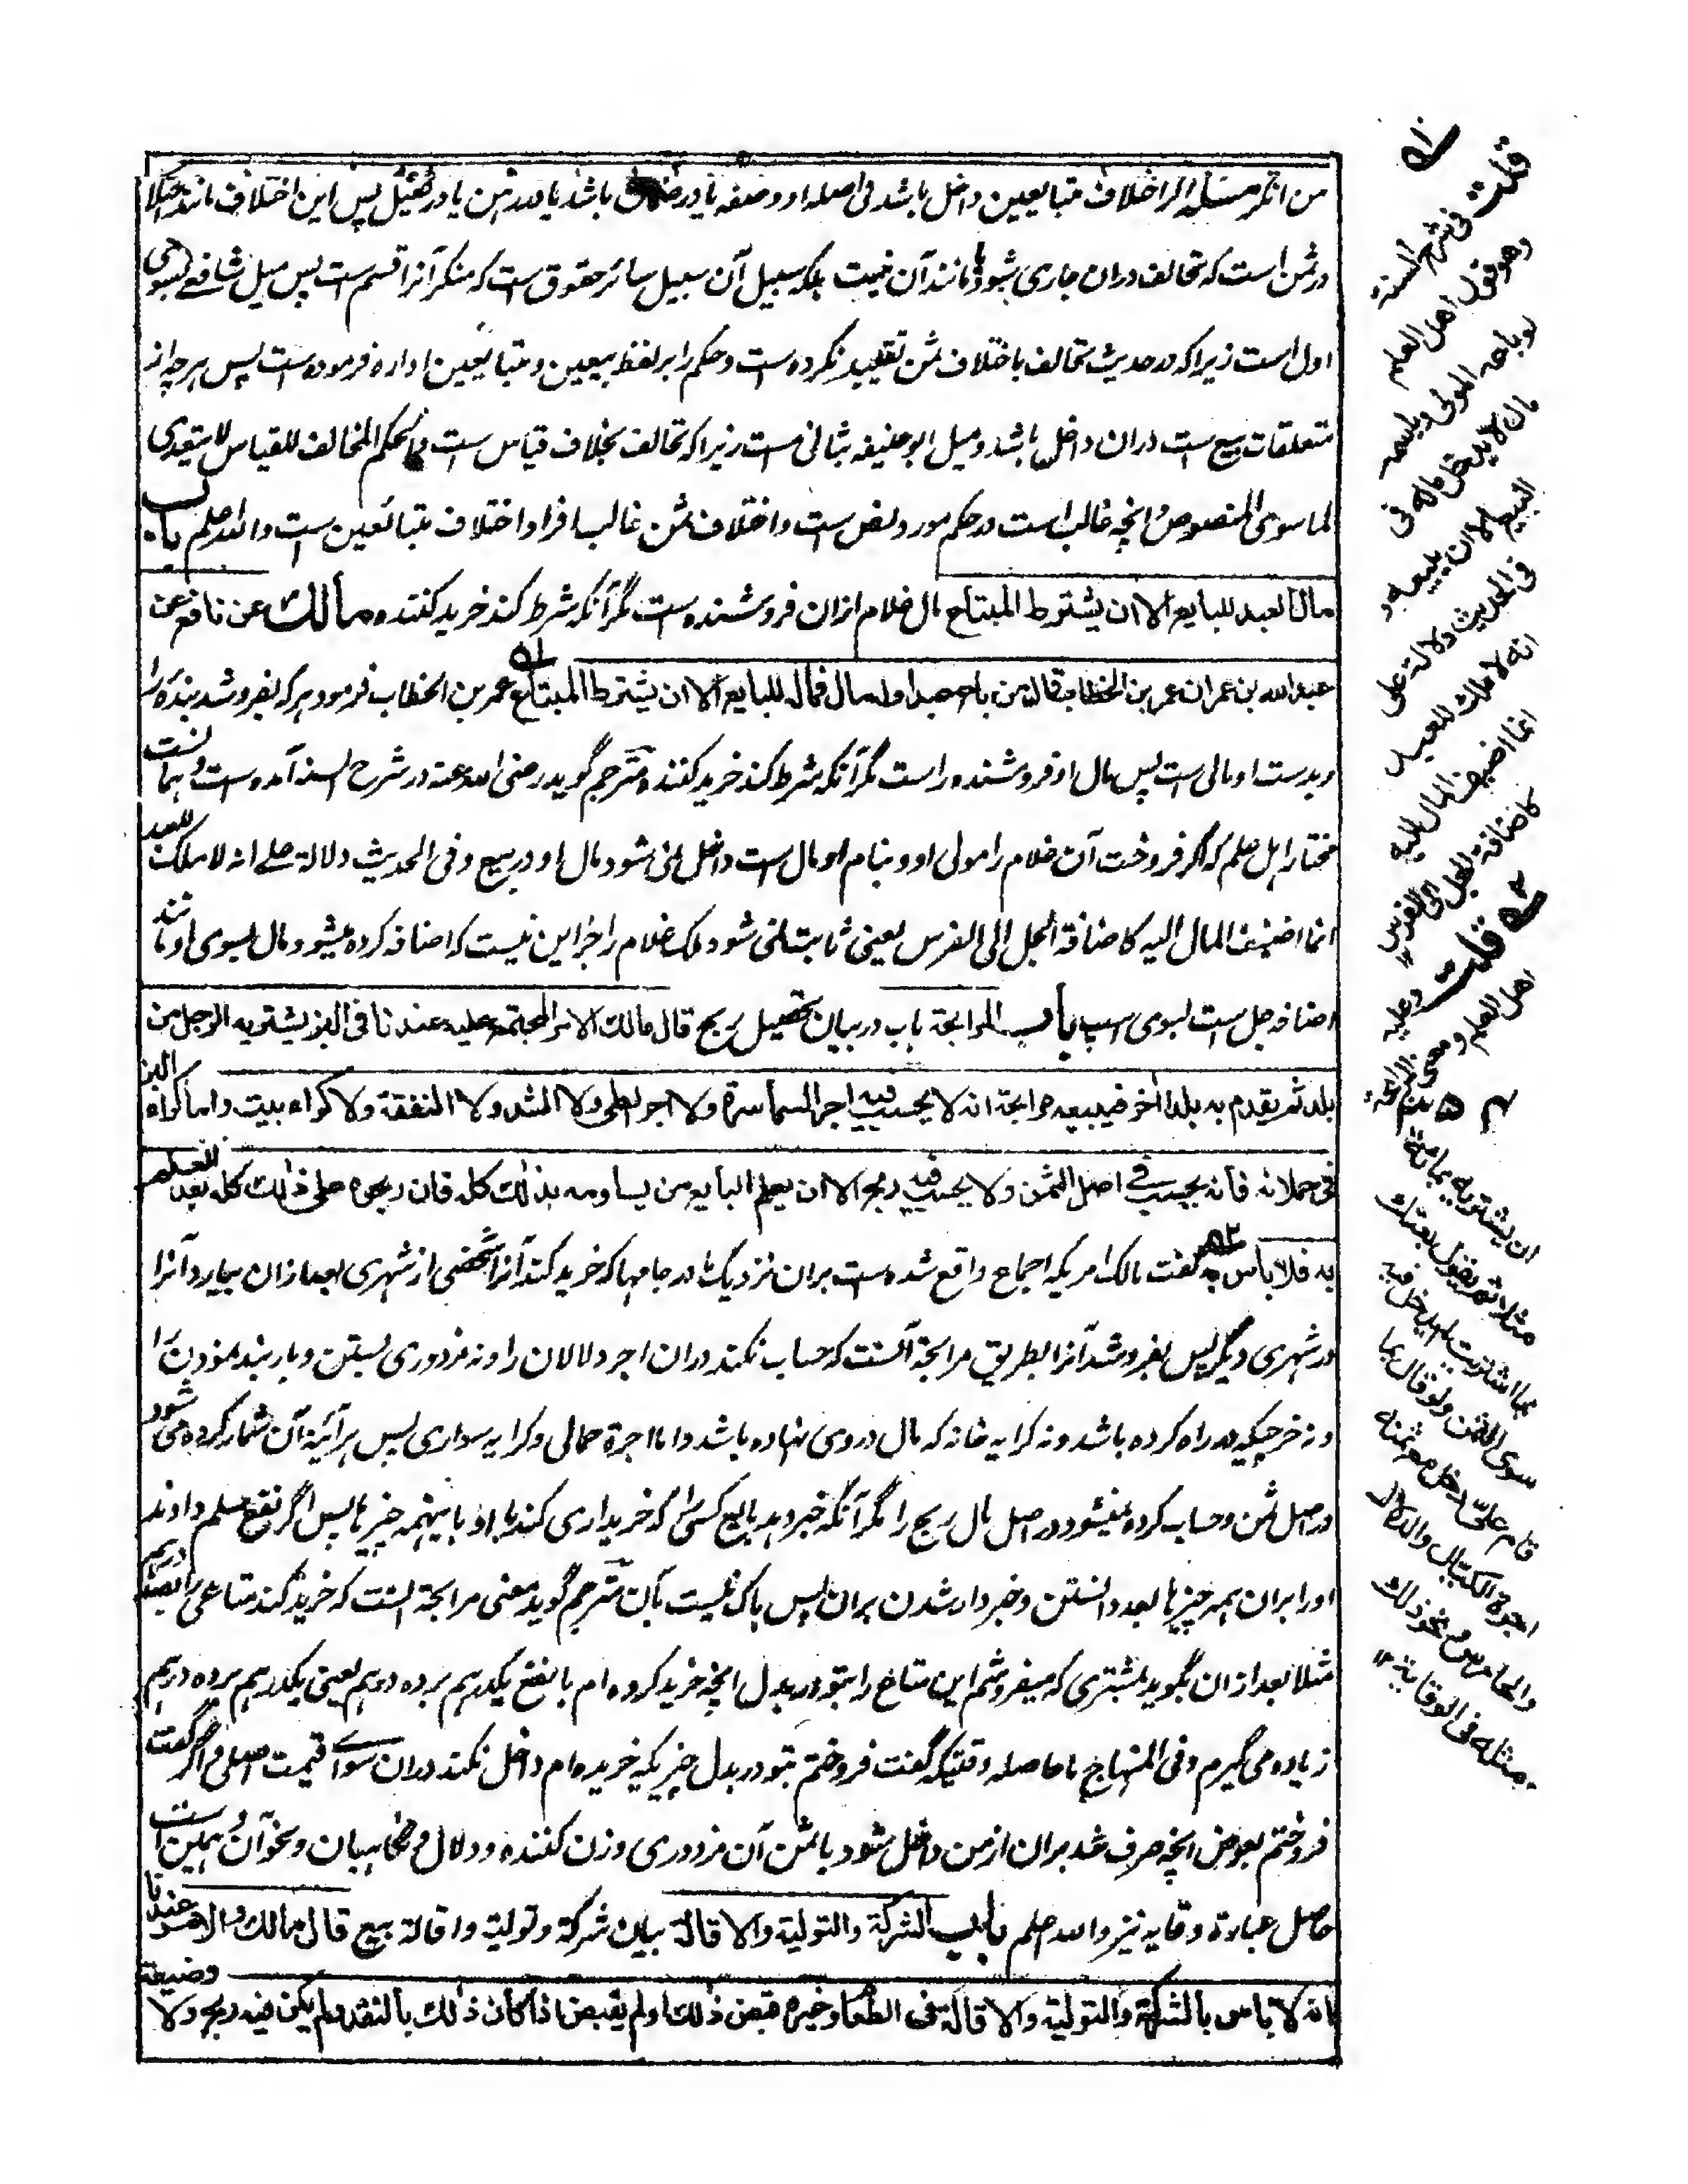 من انکر مسئله اگر اختلاف متبایعین داخل باشد فی اصله او وصفه یا در باشد یا در ثمن یا در مثمن پس این اختلاف مانند اختلاف
در ثمن است که تحالف دران جاری بشود یا مانند آن نیست بلکه سبیل آن سبیل سائر حقوق است که منکر آنرا قسم است پس میل شافعی بسوی
اول است زیرا که در حدیث تحالف باختلاف ثمن تقیید نکرده است و حکم را بر لفظ بیعین و متبایعین اداره فرموده است پس هر چه از
متعلقات بیع است دران داخل باشد و میل ابو حنیفه بثانی است زیرا که تحالف بخلاف قیاس است والحکم المخالف للقیاس لا یتعدی
لما سوی المنصوص و انچه غالب است در حکم مورد نص است و اختلاف ثمن غالب افراد اختلاف متبائعین است والله اعلم باب
مال العبد للبایع الا ان یشترط المبتاع مال غلام ازان فروشنده است مگر آنکه شرط کند خرید کننده مالک عن نافع عن
عبد الله بن عمر ان عمر بن الخطاب قال من باع عبدا وله مال فماله للبایع الا ان یشترط المبتاع عمر بن الخطاب فرمود هر که بفروشد بنده را
و بدست او مالی است پس مال او فروشنده راست مگر آنکه شرط کند خرید کننده مترجم گوید رضی الله عنه در شرح السنه آمده است و همانست
مختار اهل علم که اگر فروخت آن غلام را مولی او و بنام او مال است داخل نمی شود مال او در بیع و فی الحدیث دلالة علی انه لا ملک للعبد
انما اضیف المال الیه کاضافة الجل الی الفرس یعنی ثابت نمی شود ملک غلام را جز این نیست که اضافه کرده میشود مال بسوی او مانند
اضافه جل است بسوی اسپ باب المرابحة باب در بیان تحصیل ربح قال مالک الامر المجتمع علیه عندنا فی البز یشتریه الرجل من
بلد ثم یقدم به بلدا اخر فیبیعه مرابحة انه لا یحسب فیه اجر السماسرة ولا اجر الطی ولا الشد ولا النفقة ولا کراء بیت واما کراء البز
فی حملانه فانه یحسب فی اصل الثمن ولا یحسب فیه ربح الا ان یعلم البایع من یساومه بذلک کله فان ربحوه علی ذلک کله بعد العلم
به فلا باس به گفت مالک امریکه اجماع واقع شده است بران نزدیک ما در جامها که خرید کند آنرا شخصی از شهری بعد ازان بیارد آنرا
در شهری دیگر پس بفروشد آنرا بطریق مرابحة آنست که حساب نکند دران اجر دلالان را و نه مزدوری بستن و باربند نمودن را
و نه خرجیکه در راه کرده باشد و نه کرایه خانه که مال در وی نهاده باشد و اما اجرة حمالی و کرایه سواری پس هر آئینه آن شمار کرده می شود
در اصل ثمن و حساب کرده نمیشود در اصل مال ربح را مگر آنگه خبر دهد بایع کسی را که خریداری کند با او باینهمه چیزها پس اگر نفع مسلم دارند
او را بران همه چیزها بعد دانستن و خبردار شدن بران پس باک نیست بآن مترجم گوید معنی مرابحة آنست که خرید کند متاعی را بصد درهم
مثلا بعد ازان بگوید بمشتری که میفروشم این متاع را بتو در بدل انچه خرید کرده ام با نفع یکدرهم بر ده درهم یعنی یکدرهم بر ده درهم
زیاده می گیرم و فی المنهاج ما حاصله وقتیکه گفت فروختم بتو در بدل چیزیکه خریده ام داخل نکند دران سوای قیمت اصلی و اگر گفت
فروختم بعوض انچه صرف شد بران از من داخل شود با ثمن آن مزدوری وزن کننده و دلال و نگاهبان و نحو آن و همین است
حاصل عبارة وقایه نیز والله اعلم باب الشرکة والتولیة والاقالة بیان شرکة و تولیة و اقالة بیع قال مالک والامر عندنا
انه لا باس بالشرکة والتولیة والاقالة فی الطعام وغیره قبض ذلک او لم یقبض اذا کان ذلک بالنقد ولم یکن فیه ربح ولا وضیعة
قلت فی شرح السنة
وهو قول اهل العلم
لو باعه المولی وبیده
مال لا یدخل ماله فی
البیع الا ان یبیعه و
فی الحدیث دلالة علی
انه لا ملک للعبد
انما اضیف المال الیه
کاضافة الجل الی الفرس
قلت وعلیه
اهل العلم ومعنی المرابحة
ان یشتریه بمائة
مثلا ثم یقول بعتک
بما اشتریت لم یدخل فیه
سوی الثمن ولو قال بما
قام علی دخل مع ثمنه
اجرة الکیال والدلال
والحارس ونحو ذلک
مثله فی الوقایة